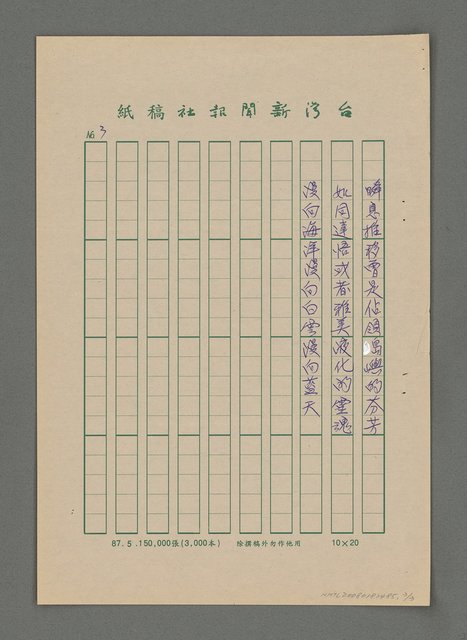 台灣新聞報社稿紙
№ 3
瞬息推移曾是佔領島嶼的芬芳
如同達悟或者雅美液化的靈魂
漫向海洋漫向白雲漫向藍天
87.5.150,000張(3,000本) 除撰稿外勿作他用 10×20